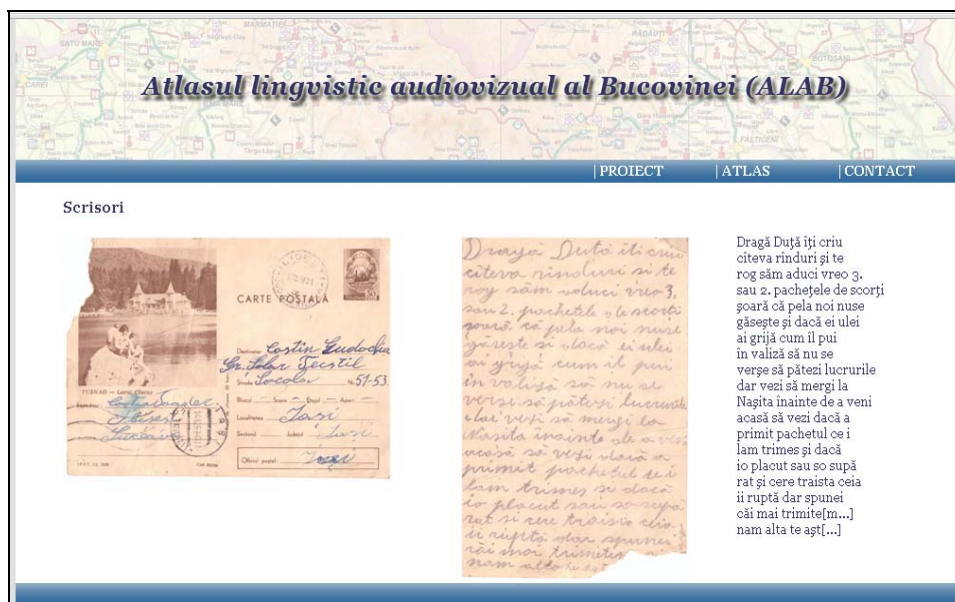 Atlasul lingvistic audiovizual al Bucovinei (ALAB)
| PROIECT | ATLAS | CONTACT
Scrisori
CARTE POȘTALĂ
Destinatar Costin Eudochia
Gr. Școlar Textil
Strada Socola Nr. 51-53
Blocul Scara Etajul Apart.
Localitatea Iași
Sectorul Județul Iași
Oficiul poștal Iași
TUȘNAD — Lacul Ciucaș
Dragă Duță iti criu
citeva rinduri si te
rog săm aduci vreo 3.
sau 2. pachetele de scorti
șoară că pela noi nuse
găseste si dacă ei ulei
ai grijă cum il pui
in valiză să nu se
verse să pătezi lucrurile
dar vezi să mergi la
Nasita inainte de a veni
acasă să vezi dacă a
primit pachetul ce i
lam trimes si dacă
io placut sau so supă
rat si cere traista ceia
ii ruptă dar spunei
căi mai trimite
nam alta te așt
Dragă Duță îți criu
cîteva rînduri și te
rog săm aduci vreo 3.
sau 2. pachețele de scorți
șoară că pela noi nuse
găsește și dacă ei ulei
ai grijă cum îl pui
în valiză să nu se
verșe să pătezi lucrurile
dar vezi să mergi la
Nașita înainte de a veni
acasă să vezi dacă a
primit pachetul ce i
lam trimes și dacă
io placut sau so supă
rat și cere traista ceia
ii ruptă dar spunei
căi mai trimite[m...]
nam alta te așt[...]